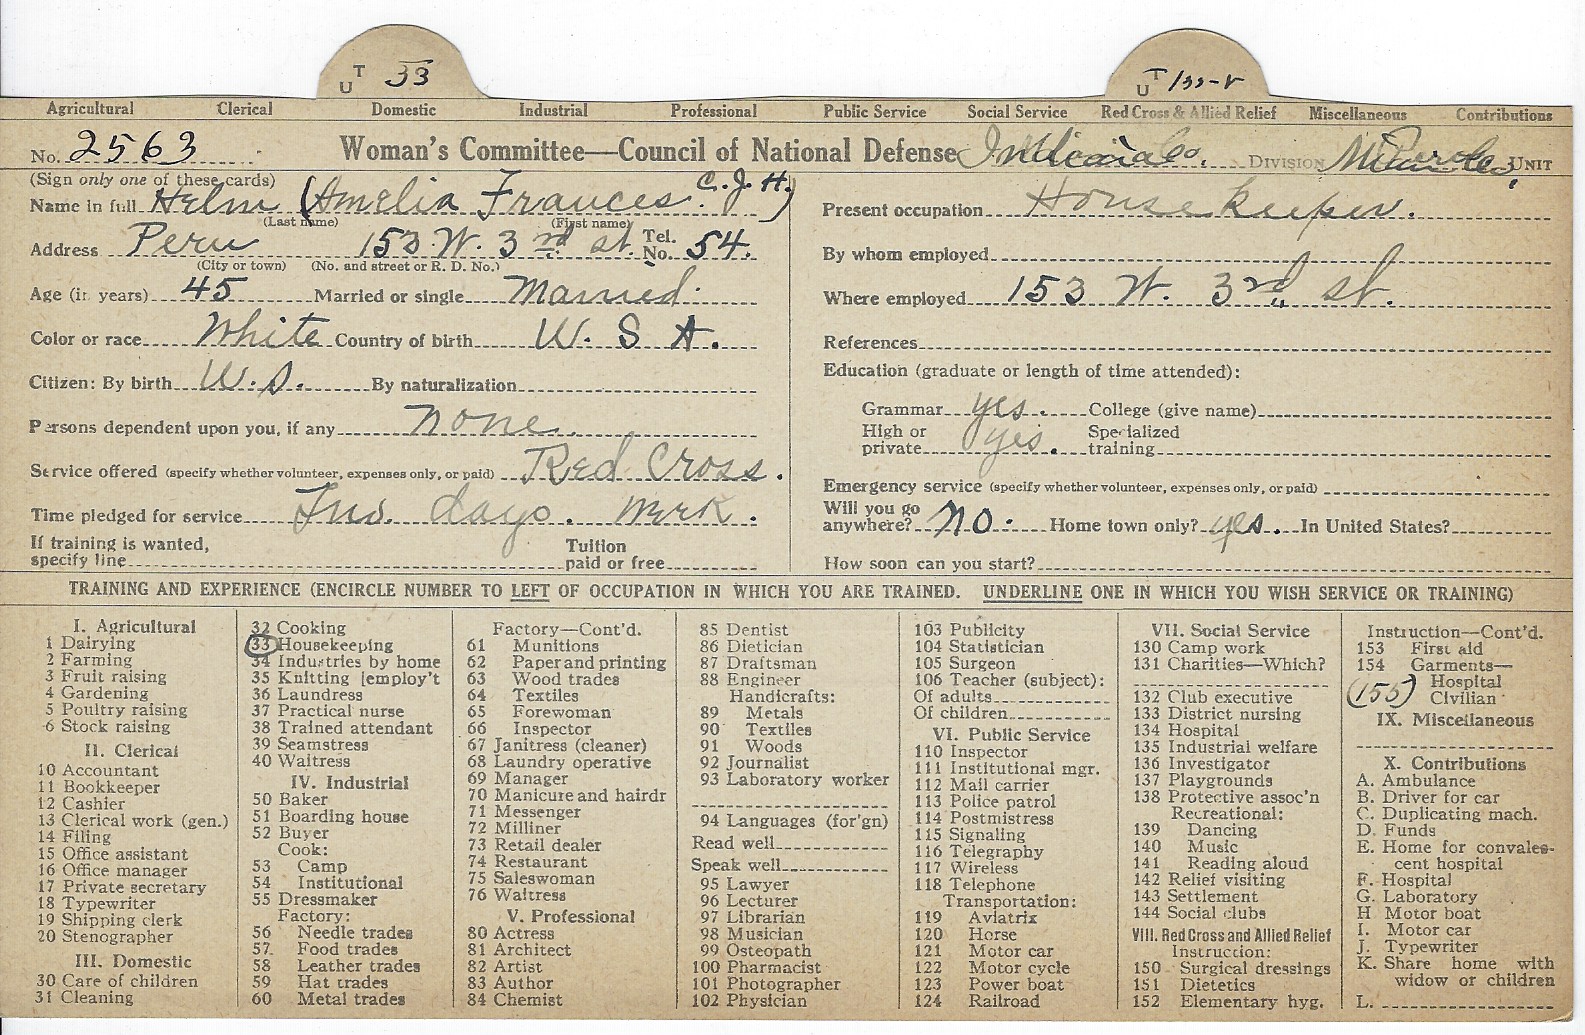 U T 33
U T 155-V
Agricultural Clerical Domestic Industrial Professional Public Service Social Service Red Cross & Allied Relief Miscellaneous Contributions
No. 2563 Woman's Committee—Council of National Defense Indiana DIVISION UNIT
(Sign only one of these cards)
Name in full Helm (Amelia Frances. C. J. H.)
(Last name) (First name)
Address Peru 153 W. 3rd st. Tel. No. 54.
(City or town) (No. and street or R. D. No.)
Age (in years) 45 Married or single Married.
Color or race White Country of birth U. S A.
Citizen: By birth U. S. By naturalization
Persons dependent upon you, if any none.
Service offered (specify whether volunteer, expenses only, or paid) Red Cross.
Time pledged for service Two days. Werk.
If training is wanted, specify line Tuition paid or free
Present occupation Housekeeper.
By whom employed
Where employed 153 W. 3rd st.
References
Education (graduate or length of time attended):
Grammar yes. College (give name)
High or private yes. Specialized training
Emergency service (specify whether volunteer, expenses only, or paid)
Will you go anywhere? no. Home town only? yes. In United States?
How soon can you start?
TRAINING AND EXPERIENCE (ENCIRCLE NUMBER TO LEFT OF OCCUPATION IN WHICH YOU ARE TRAINED. UNDERLINE ONE IN WHICH YOU WISH SERVICE OR TRAINING)
I. Agricultural
1 Dairying
2 Farming
3 Fruit raising
4 Gardening
5 Poultry raising
6 Stock raising
II. Clerical
10 Accountant
11 Bookkeeper
12 Cashier
13 Clerical work (gen.)
14 Filing
15 Office assistant
16 Office manager
17 Private secretary
18 Typewriter
19 Shipping clerk
20 Stenographer
III. Domestic
30 Care of children
31 Cleaning
32 Cooking
33 Housekeeping
34 Industries by home
35 Knitting [employ't
36 Laundress
37 Practical nurse
38 Trained attendant
39 Seamstress
40 Waitress
IV. Industrial
50 Baker
51 Boarding house
52 Buyer
Cook:
53 Camp
54 Institutional
55 Dressmaker
Factory:
56 Needle trades
57 Food trades
58 Leather trades
59 Hat trades
60 Metal trades
Factory—Cont'd.
61 Munitions
62 Paper and printing
63 Wood trades
64 Textiles
65 Forewoman
66 Inspector
67 Janitress (cleaner)
68 Laundry operative
69 Manager
70 Manicure and hairdr
71 Messenger
72 Milliner
73 Retail dealer
74 Restaurant
75 Saleswoman
76 Waitress
V. Professional
80 Actress
81 Architect
82 Artist
83 Author
84 Chemist
85 Dentist
86 Dietician
87 Draftsman
88 Engineer
Handicrafts:
89 Metals
90 Textiles
91 Woods
92 Journalist
93 Laboratory worker
94 Languages (for'gn)
Read well
Speak well
95 Lawyer
96 Lecturer
97 Librarian
98 Musician
99 Osteopath
100 Pharmacist
101 Photographer
102 Physician
103 Publicity
104 Statistician
105 Surgeon
106 Teacher (subject):
Of adults
Of children
VI. Public Service
110 Inspector
111 Institutional mgr.
112 Mail carrier
113 Police patrol
114 Postmistress
115 Signaling
116 Telegraphy
117 Wireless
118 Telephone
Transportation:
119 Aviatrix
120 Horse
121 Motor car
122 Motor cycle
123 Power boat
124 Railroad
VII. Social Service
130 Camp work
131 Charities—Which?
132 Club executive
133 District nursing
134 Hospital
135 Industrial welfare
136 Investigator
137 Playgrounds
138 Protective assoc'n
Recreational:
139 Dancing
140 Music
141 Reading aloud
142 Relief visiting
143 Settlement
144 Social clubs
VIII. Red Cross and Allied Relief
Instruction:
150 Surgical dressings
151 Dietetics
152 Elementary hyg.
Instruction—Cont'd.
153 First aid
154 Garments—
Hospital
(155) Civilian
IX. Miscellaneous
X. Contributions
A. Ambulance
B. Driver for car
C. Duplicating mach.
D. Funds
E. Home for convales-
cent hospital
F. Hospital
G. Laboratory
H Motor boat
I. Motor car
J. Typewriter
K. Share home with
widow or children
L.